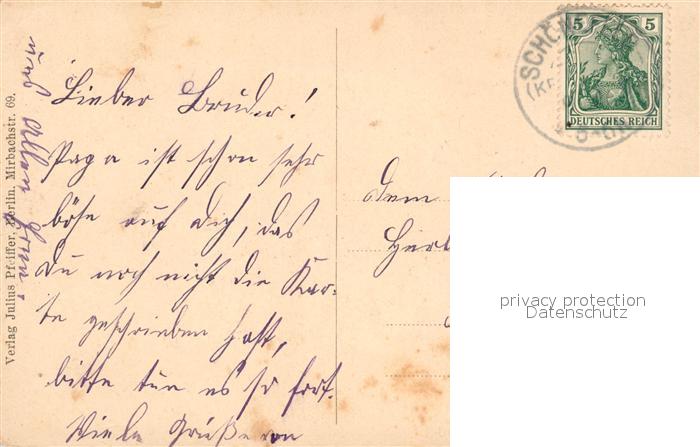 Lieber Bruder!
Papa ist schon sehr
böse auf dich, das
Du noch nicht die Kar-
te geschrieben hast,
bitte tue es so fort.
Viele Grüße von
und allen
Dem
Verlag Julius Pfeiffer, Berlin, Mirbachstr. 69.
5 5
DEUTSCHES REICH
SCHÖN
privacy protection
Datenschutz